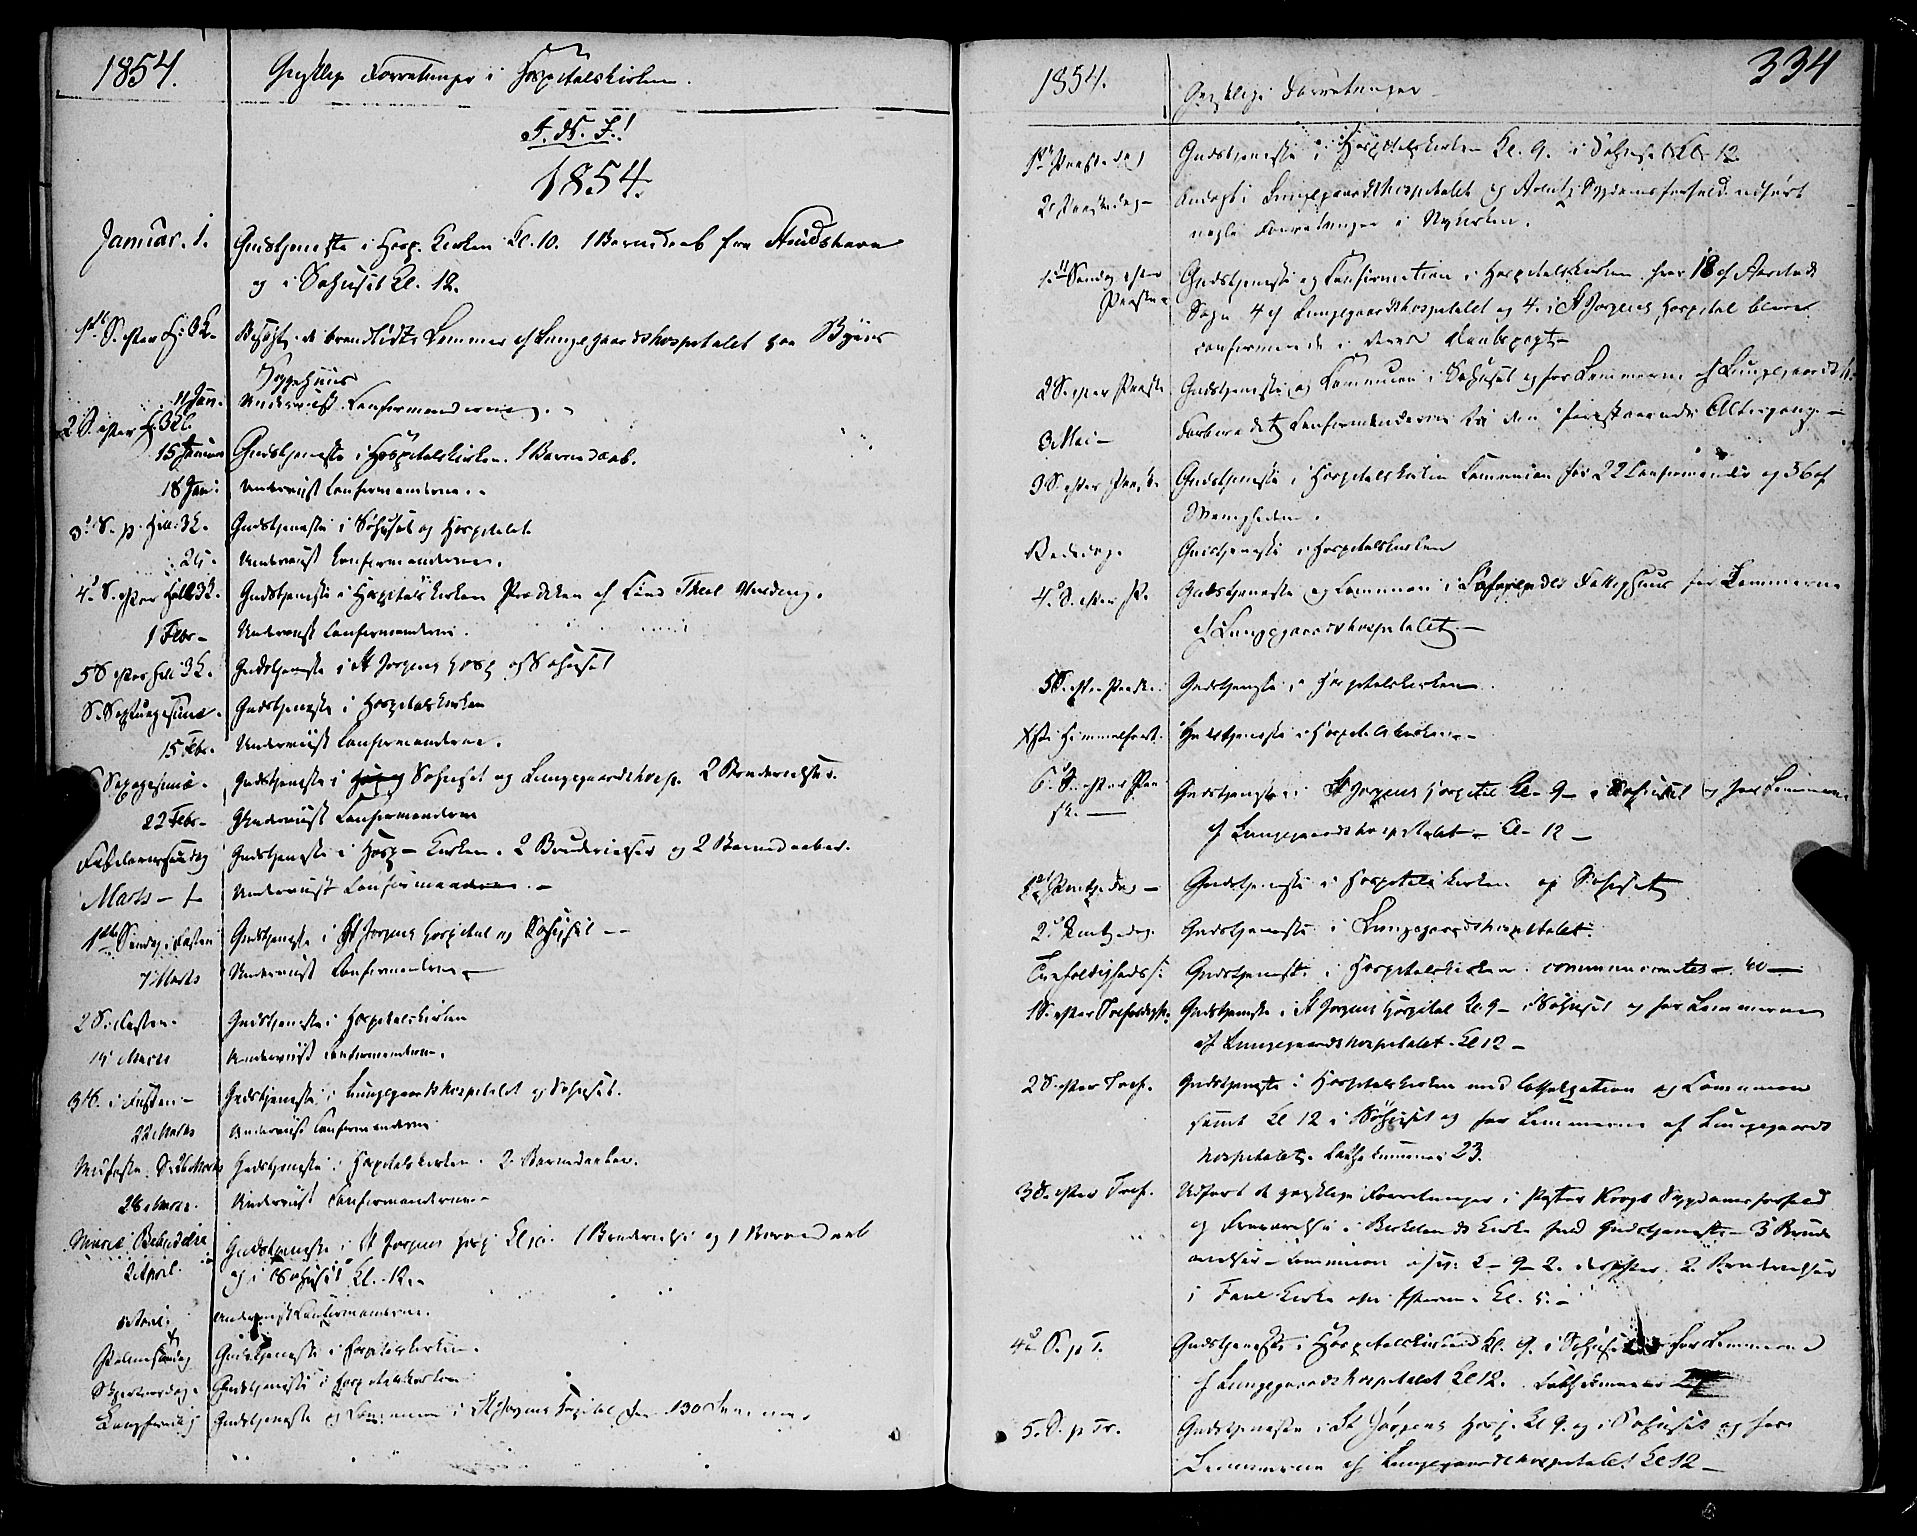 1854. Geistlige Forretninger i Hospitalskirken.
I. N. J.!
1854.
Januar. 1. Gudstjeneste i Hosp. Kirken Kl. 10. 1 Barnedaab fra
og i Søhuset Kl. 12.
1ste S. efter H. 3 K. Besøgt de Lemmer af Lungegaardshospitalet paa Byens
Sygehuus
11 Jan. Underviist Confirmanderne.
2 S. efter H. 3 K.
15 Januar Gudstjeneste i Hospitalskirken. 1 Barnedaab.
18 Jan: Underviist Confirmanderne.
3d S. p. Hell. 3 K. Gudstjeneste i Søhuset og Hospitalet
25. Underviist Confirmanderne.
4d S. efter Hell 3 K. Gudstjeneste i Hospitalskirken Prædiken af Cand Theol
1 Febr. Underviist Confirmanderne.
5 S efter Hell 3 K. Gudstjeneste i St Jørgens Hosp og Søhuset
S. Septuagesima. Gudstjeneste i Hospitalskirken
15 Febr. Underviist Confirmanderne.
S Sexagesima. Gudstjeneste i Søhuset og Lungegaardshosp. 2 Brudevielser.
22 Febr. Underviist Confirmanderne
Fastelavnssøndag Gudstjeneste i Hosp. Kirken. 2 Brudevielser og 2 Barnedaaber.
Marts 1. Underviist Confirmanderne.
1ste Søndag i Fasten Gudstjeneste i St Jørgens Hospital og Søhuset
7 Marts Underviist Confirmanderne
2 S. i Fasten. Gudstjeneste i Hospitalskirken
15 Marts Underviist Confirmanderne.
3 S. i Fasten Gudstjeneste i Lungegaardshospitalet og Søhuset.
22 Marts Underviist Confirmanderne
Midfaste S. 26 Marts Gudstjeneste i Hospitalskirken. 2 Barnedaaber.
28 Marts. Underviist Confirmanderne
Mariæ Bebudelse Gudstjeneste i St Jørgens Hosp Kl 10. 1 Brudevielse og 1 Barnedaab
2 April. og i Søhuset Kl. 12.
April. Underviist Confirmanderne.
Palmesøndag Gudstjeneste i Hospitalskirken.
Skjærtorsdag. Gudstjeneste i Hospitalskirken
Langfredag Gudstjeneste og Communion i St Jørgens Hospital for 130 Lemmerne.
334
1854. Geistlige Forretninger
1ste Paaskedag Gudstjeneste i Hospitalskirken Kl. 9. i Søhuset Kl. 12.
2 Paaskedag Andagt i Lungegaardshospitalet og Sygdomsforfald udført
nogle Forretninger i Nykirken.
1ste Søndag efter Gudstjeneste og Confirmation i Hospitalskirken hvor 18 af Aarstads
Paaske Sogn 4 af Lungegaardshospitalet og 4 i St Jørgens Hospital bleve
confirmerede i deres Daabspagt
2 S. efter Paaske Gudstjeneste og Communion i Søhuset og for Lemmerne af Lungegaardsh.
3 Mai Forberedet Confirmanderne til den forestaaende Altergang.
3 S. efter Paaske. Gudstjeneste i Hospitalskirken Communion for 22 Confirmander og 36 af
Menigheden.
Bededag. Gudstjeneste i Hospitalskirken
4d S. efter P. Gudstjeneste og Communion i Søfarendes Fattighuus for Lemmerne
af Lungegaardshospitalet.
5 S. efter Paaske. Gudstjeneste i Hospitalskirken
Xsti Himmelfart. Gudstjeneste i Hospitalskirken
6d S. efter Paa Gudstjeneste i St Jørgens Hospital Kl. 9 i Søhuset og for Lemmerne
ske. af Lungegaardshospitalet Kl. 12
1ste Pintsedag Gudstjeneste i Hospitalskirken og Søhuset
2d Pintsedag. Gudstjeneste i Lungegaardshospitalet.
Trefoldigheds S. Gudstjeneste i Hospitalskirken. communicantes 40
1 S. efter Trefoldigh. Gudstjeneste i St Jørgens Hospital Kl. 9 i Søhuset og for Lemmerne
af Lungegaardshospitalet. Kl 12
2 S. efter Tref. Gudstjeneste i Hospitalskirken med Cathechisation og Communion
samt Kl 12 i Søhuset og for Lemmerne af Lungegaards
hospitalet. 23.
3 S. efter Tref. Udført de geistlige Forretninger i Pastor Krogs Sygdomsforfald
og Fraværelse i Birkelands Kirke hvor Gudstjeneste 3 Brude
vielser Communion derefter 2 Brudevielser
i Fane Kirke om Aftenen Kl. 5.
4d S. p T. Gudstjeneste i Hospitalskirken Kl. 9. i Søhuset for Lemmerne
af Lungegaardshospitalet Kl 12.
5. S. p Tr. Gudstjeneste i St Jørgens Hosp. Kl 9. og i Søhuset og for
Lemmerne af Lungegaardshospitalet Kl 12